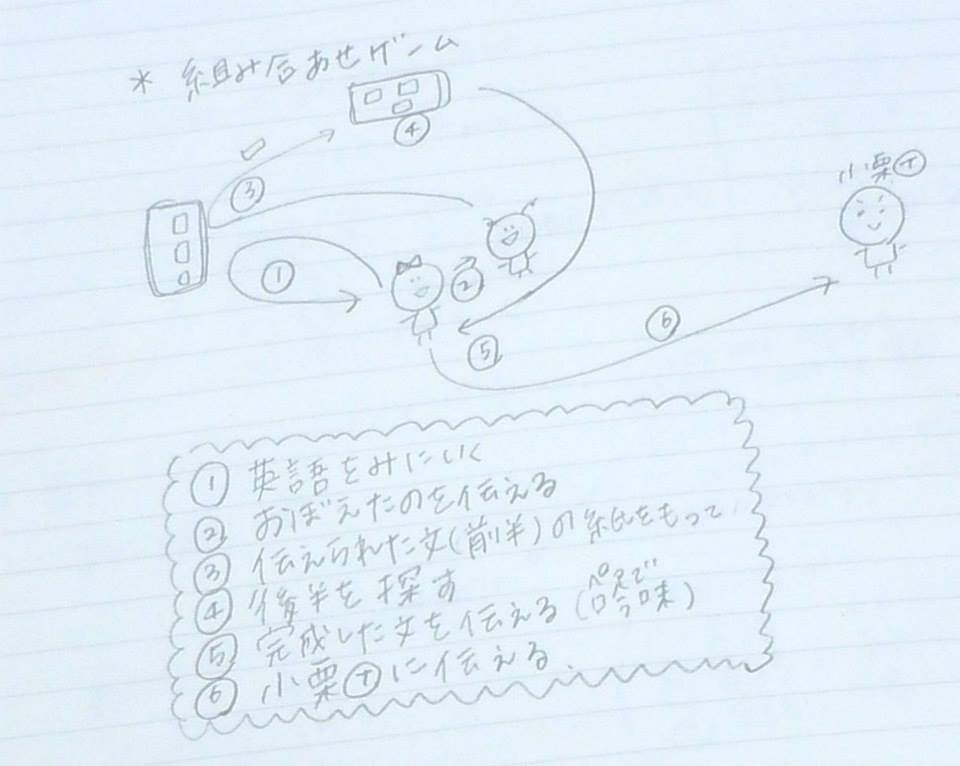 * 組み合わせゲーム
④
③
小栗㋚
①
②
⑥
⑤
① 英語をみにいく
② おぼえたのを伝える
③ 伝えられた文(前半)の紙をもって
④ 後半を探す
ペアで
⑤ 完成した文を伝える(吟味)
⑥ 小栗㋚に伝える